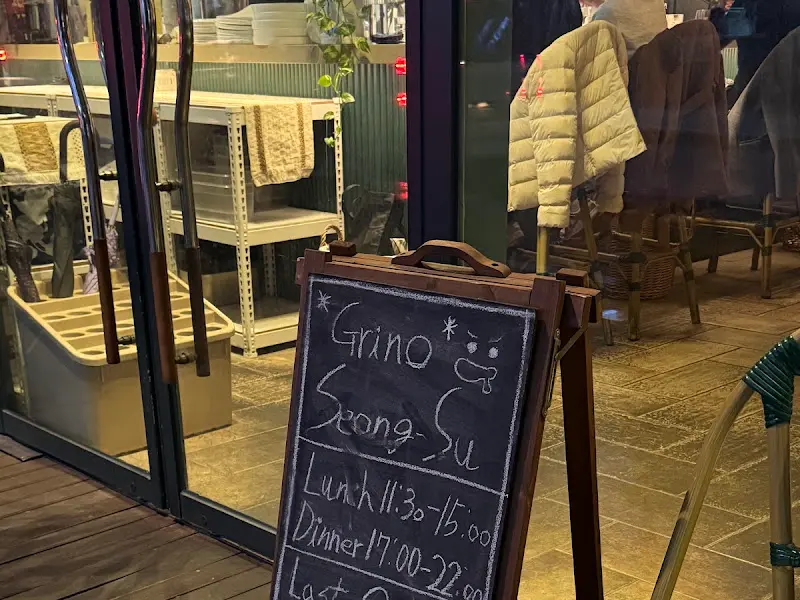 Grino
Seong-Su
Lunch 11:30-15:00
Dinner 17:00-22:00
Last